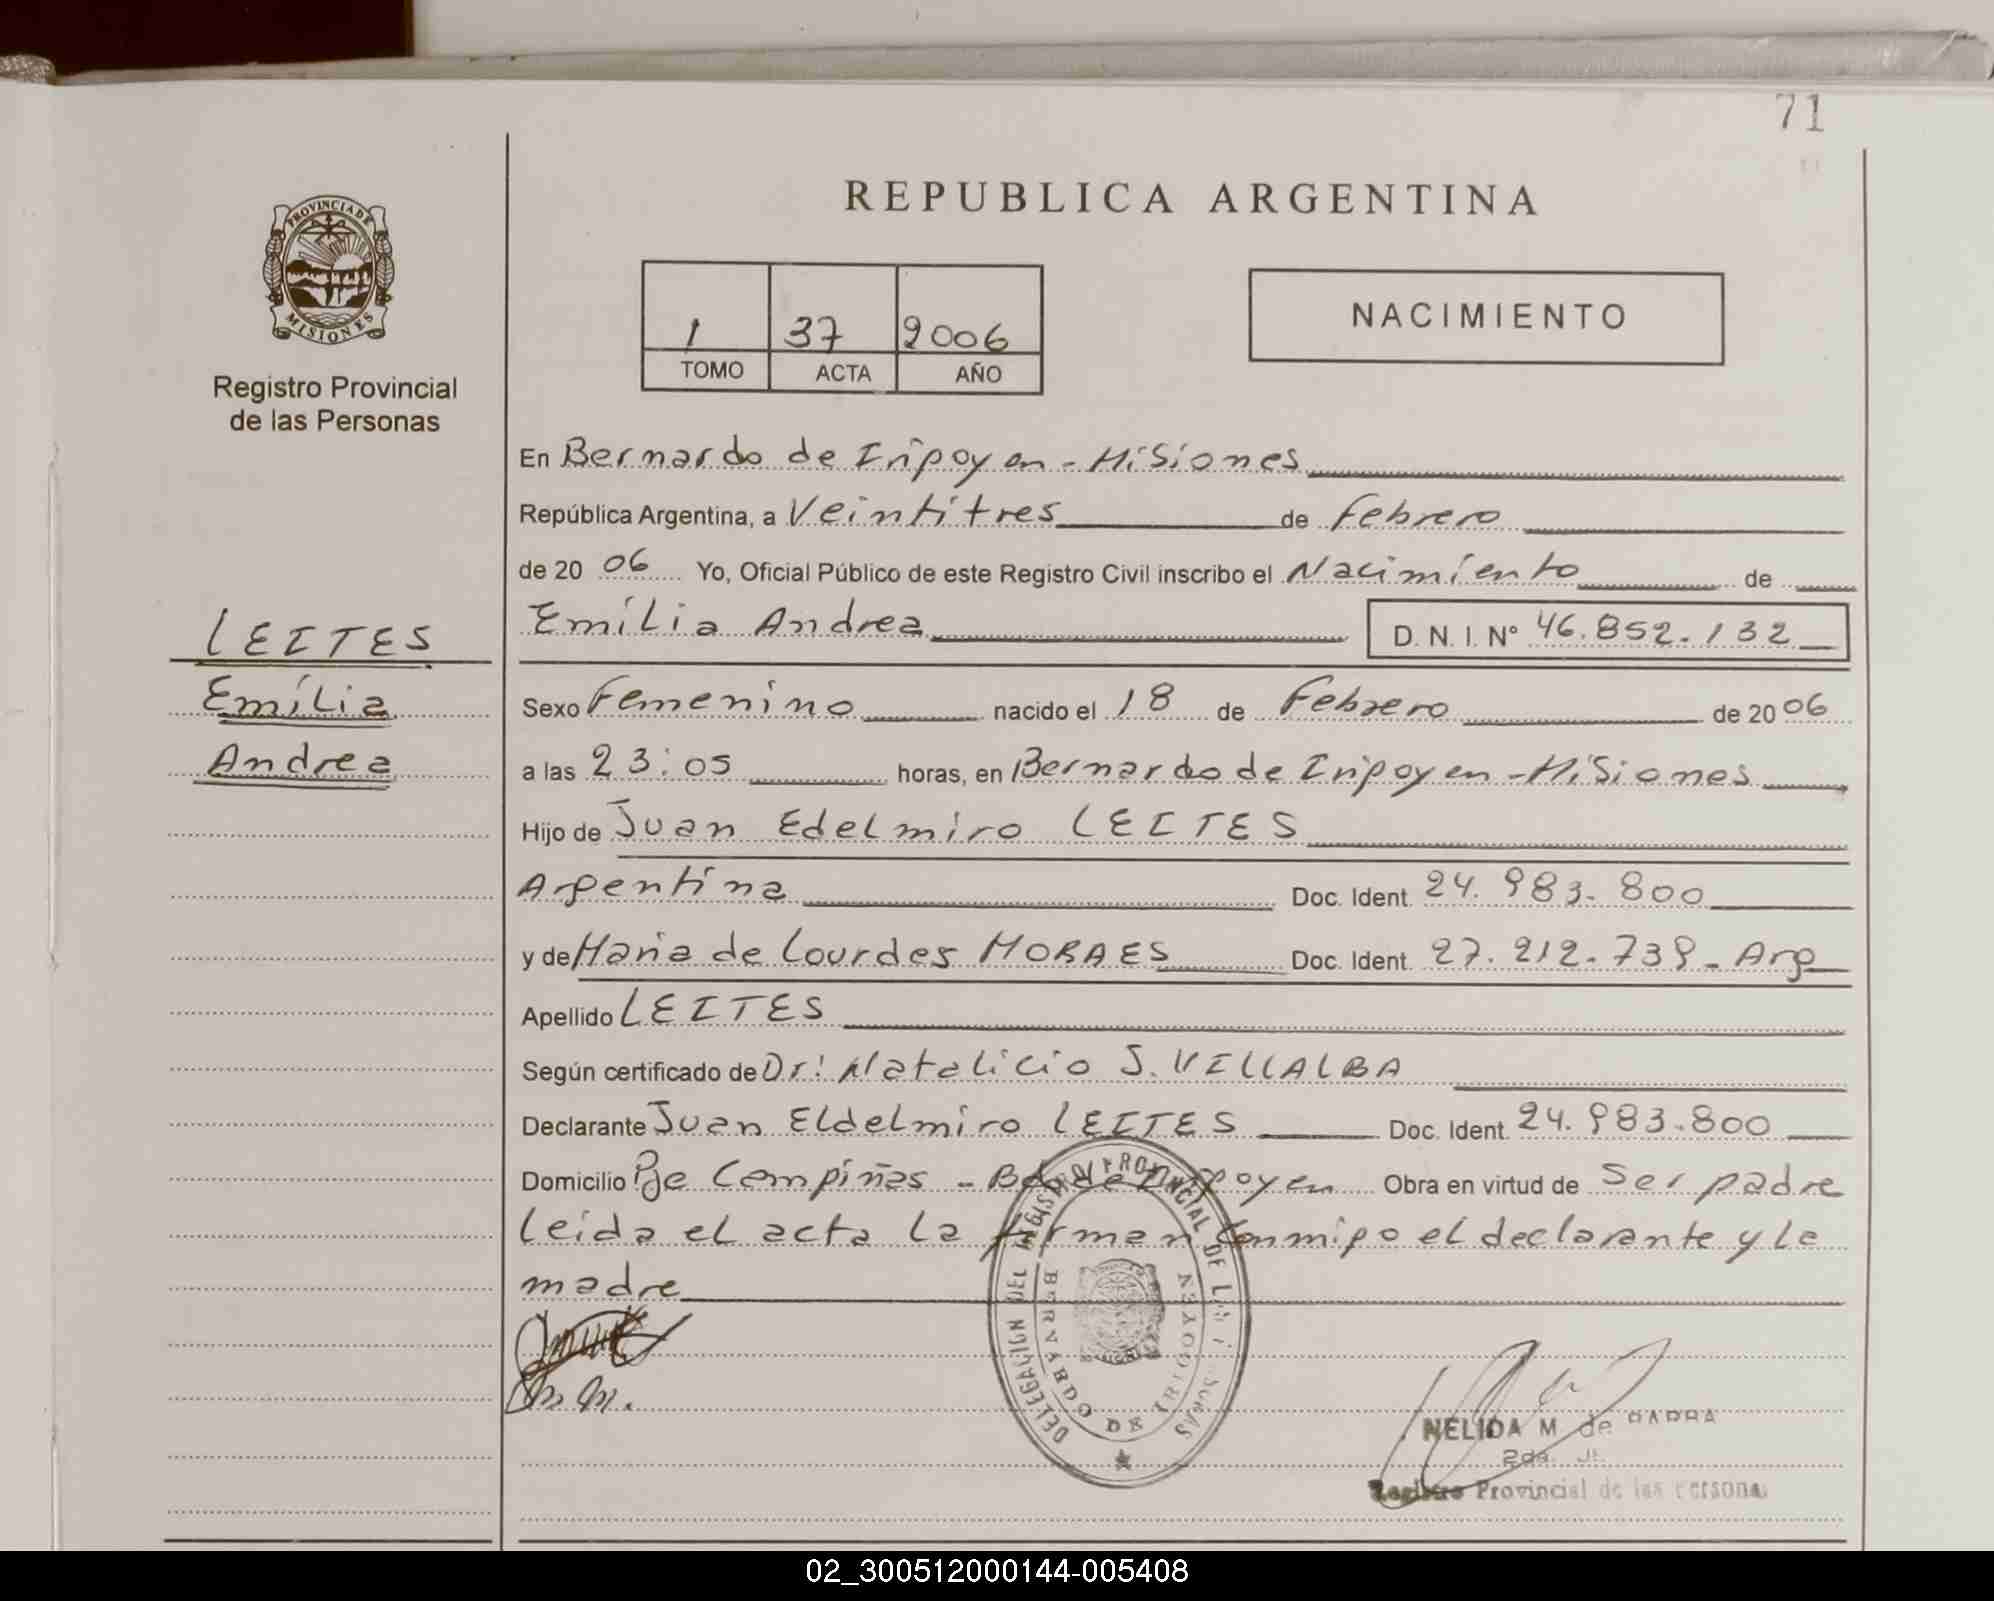 71
REPUBLICA ARGENTINA
PROVINCIA DE
MISIONES
Registro Provincial
de las Personas
1 37 2006
TOMO ACTA AÑO
NACIMIENTO
En Bernardo de Irigoyen - Misiones
República Argentina, a Veintitres de Febrero
de 20 06 Yo, Oficial Público de este Registro Civil inscribo el Nacimiento de
Emilia Andrea D. N. I. N° 46.852.132
LEITES
Emilia
Andrea
Sexo Femenino nacido el 18 de Febrero de 20 06
a las 23:05 horas, en Bernardo de Irigoyen - Misiones
Hijo de Juan Edelmiro LEITES
Argentina Doc. Ident. 24.983.800
y de Maria de Lourdes MORAES Doc. Ident. 27.212.739 - Arg
Apellido LEITES
Según certificado de Dr: Natalicio J. VILLALBA
Declarante Juan Eldelmiro LEITES Doc. Ident. 24.983.800
Domicilio Pje Campiñas - Bdo de Irigoyen Obra en virtud de Ser padre
leida el acta la firman conmigo el declarante y la
madre
DELEGACION DEL REGISTRO PROVINCIAL DE LAS PERSONAS
BERNARDO DE IRIGOYEN
NELIDA M de PARRA
2da.
Registro Provincial de las Personas
02_300512000144-005408